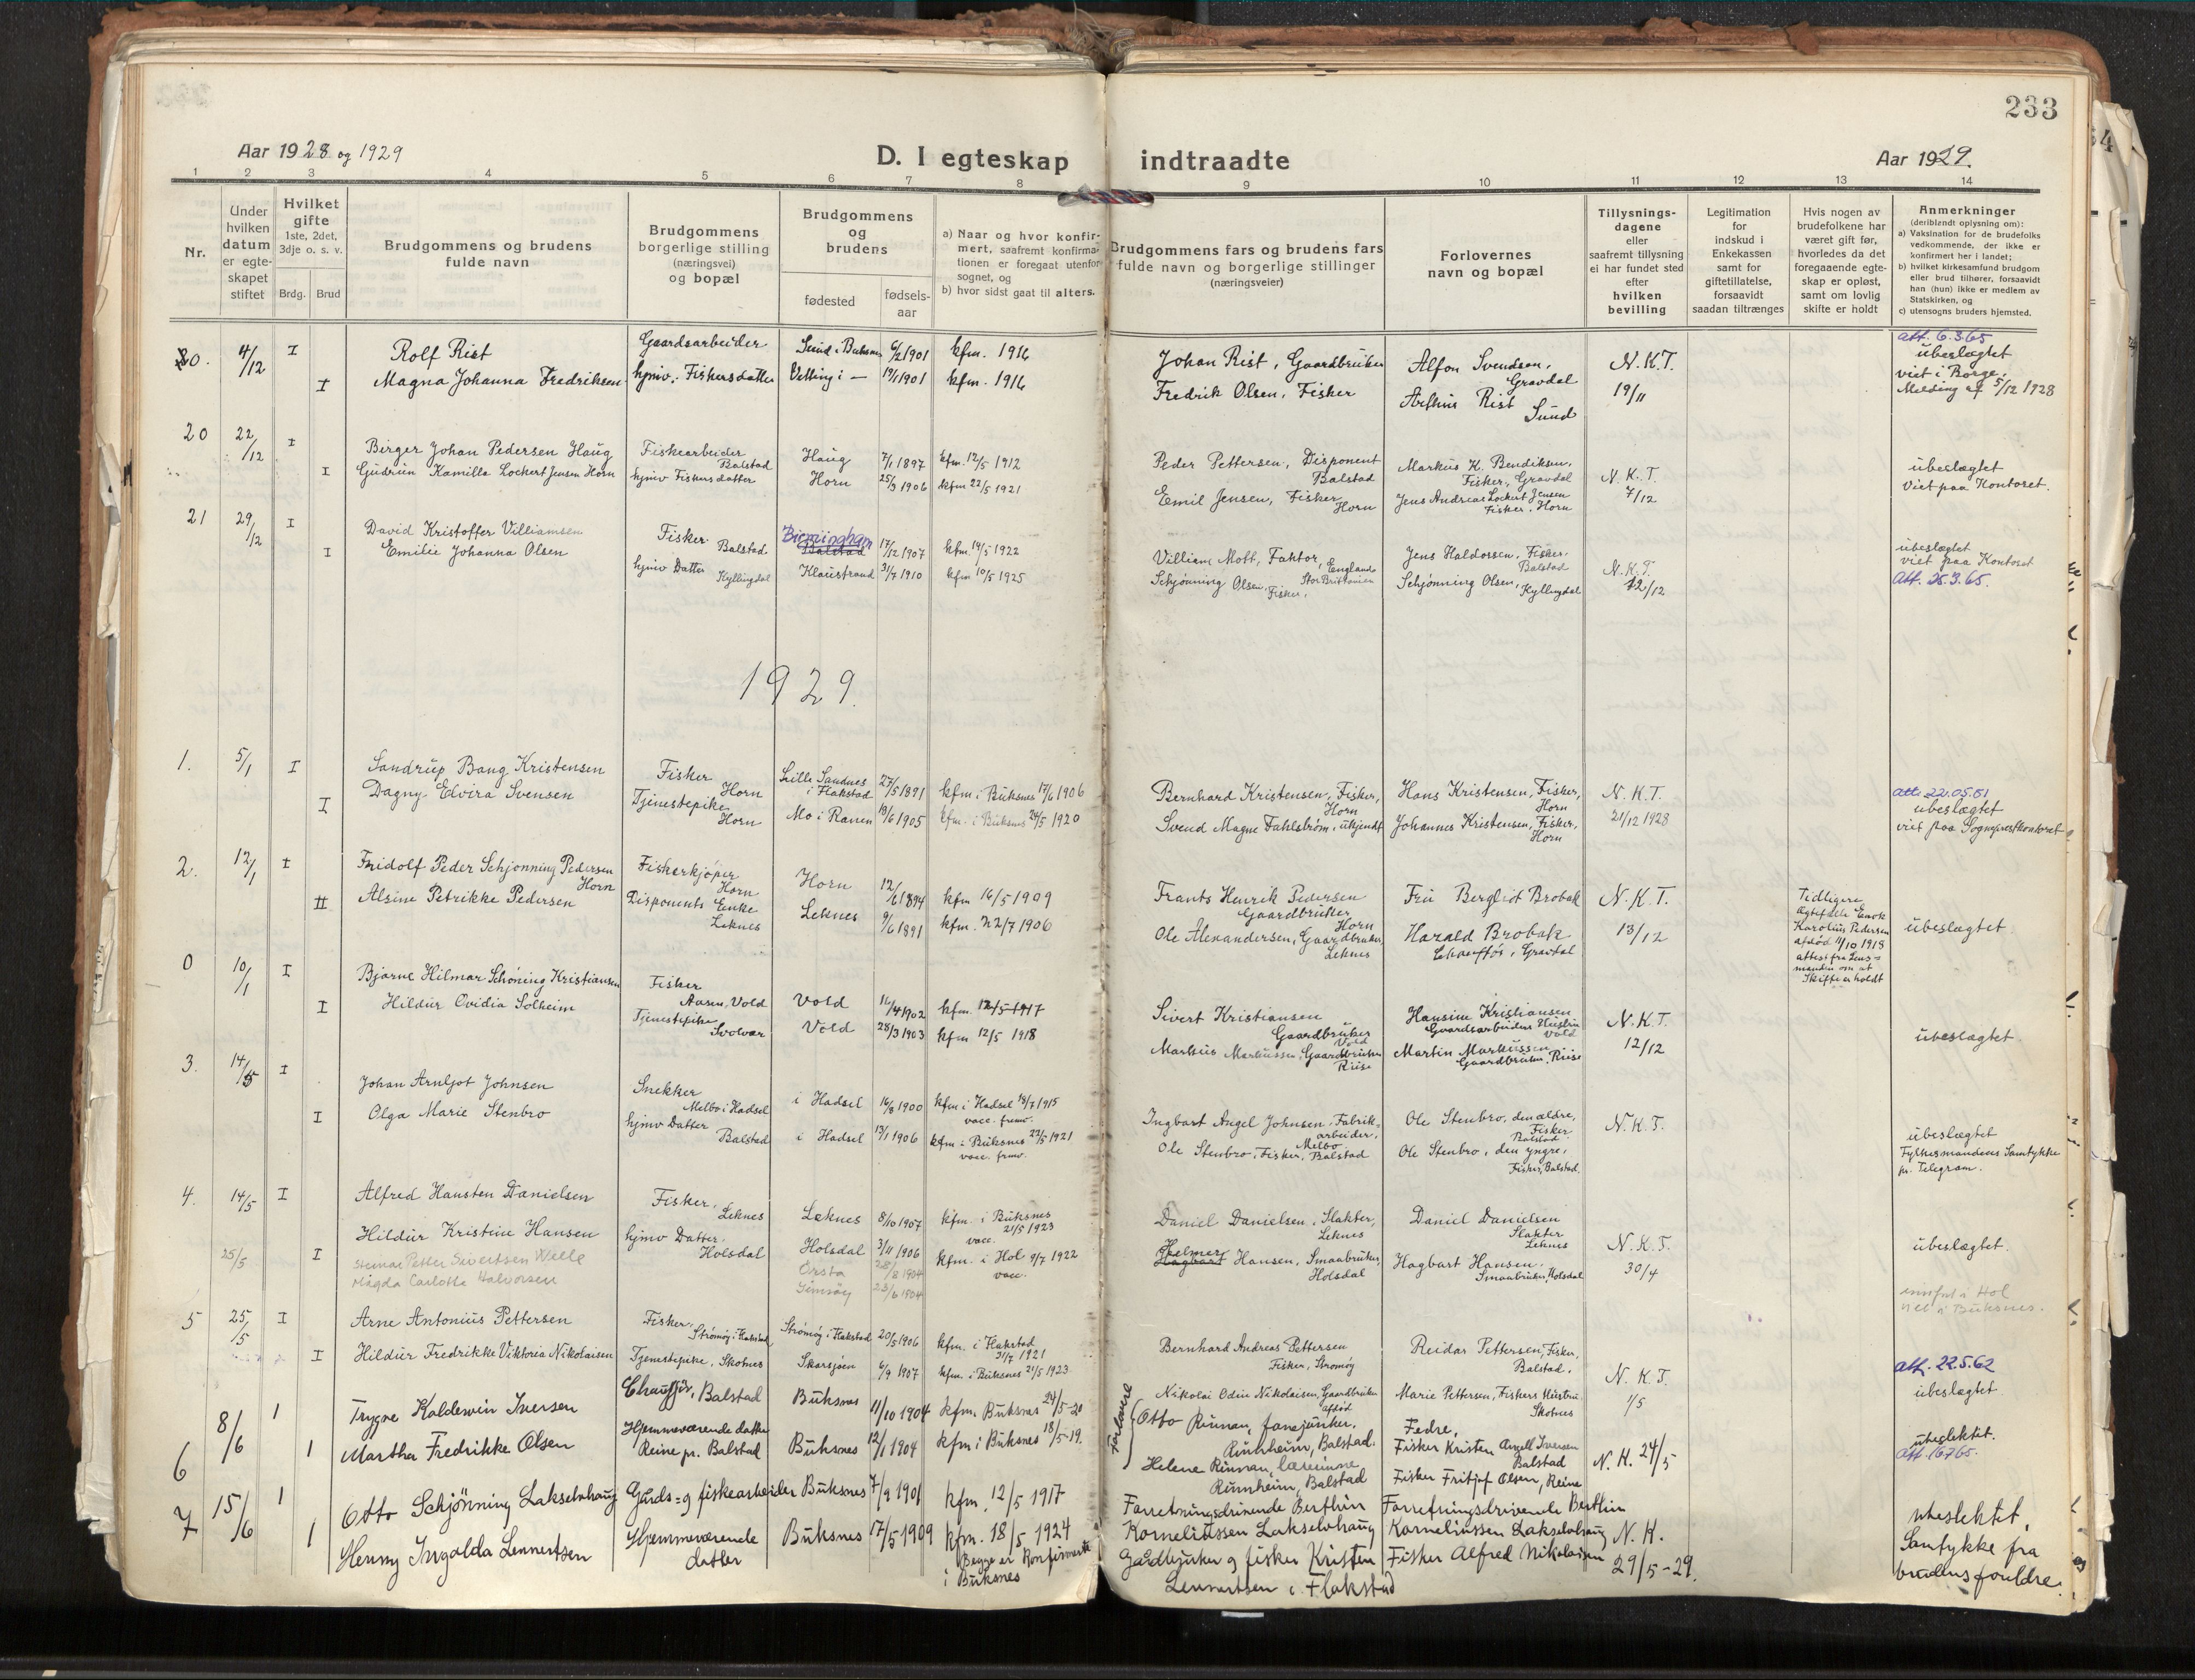 233
Aar 1928 og 1929
D. I egteskap indtraadte
Aar 1929.
1 2 3 4 5 6 7 8 9 10 11 12 13 14
Nr.
Under hvilken datum er egteskapet stiftet
Hvilket gifte 1ste, 2det, 3dje o. s. v.
Brdg. Brud
Brudgommens og brudens fulde navn
Brudgommens borgerlige stilling (næringsvei) og bopæl
Brudgommens og brudens
fødested
fødsels-aar
a) Naar og hvor konfirmert, saafremt konfirmationen er foregaat utenfor sognet, og
b) hvor sidst gaat til alters.
Brudgommens fars og brudens fars fulde navn og borgerlige stillinger (næringsveier)
Forlovernes navn og bopæl
Tillysnings-dagene eller saafremt tillysning ei har fundet sted efter hvilken bevilling
Legitimation for indskud i Enkekassen samt for giftetillatelse, forsaavidt saadan tiltrænges
Hvis nogen av brudefolkene har været gift før, hvorledes da det foregaaende egteskap er opløst, samt om lovlig skifte er holdt
Anmerkninger (deriblandt oplysning om):
a) Vaksination for de brudefolks vedkommende, der ikke er konfirmert her i landet;
b) hvilket kirkesamfund brudgom eller brud tilhører, forsaavidt han (hun) ikke er medlem av Statskirken, og
c) utensogns bruders hjemsted.
0. 4/12 I Rolf Rist Gaardsarbeider Sund i Buksnes 6/2 1901 kfm. 1916 Johan Rist, Gaardbruker Alfon Svendsen, Gravdal N.K.T. att. 6.3.65 ubeslægtet
I Magna Johanna Fredriksen hjmv. Fiskersdatter Vetting i — 19/1 1901 kfm. 1916 Fredrik Olsen, Fisker Arthur Rist Sund 19/11 viet i Borge. Melding af 5/12 1928
20 22/12 I Birger Johan Pedersen Haug Fiskearbeider Balstad Haug 7/1 1897 kfm. 12/5 1912 Peder Pettersen, Disponent Balstad Markus K. Bendiksen, Fisker, Gravdal N.K.T. ubeslægtet
I Gudrun Kamilla Lockert Jensen Horn hjmv Fiskersdatter Horn 25/3 1906 kfm 22/5 1921 Emil Jensen, Fisker Horn Jens Andreas Lockert Jensen Fisker, Horn 7/12 Viet paa Kontoret.
21 29/12 I David Kristoffer Villiamsen Fisker Balstad. Birmingham Balstad 17/12 1907 kfm. 14/5 1922 Villiam Mott, Faktor, England Stor Brittanien Jens Haldorsen, Fisker, Balstad N.K.T. ubeslægtet viet paa Kontoret
I Emilie Johanna Olsen hjmv Datter Kyllingdal Klaustrand 31/7 1910 kfm 10/5 1925 Schjønning Olsen, Fisker. Schjønning Olsen, Kyllingdal 12/12 Att. 25.3.65.
1929.
1. 5/1 I Sandrup Bang Kristensen Fisker Horn Lille Sandnes i Flakstad 27/5 1891 kfm i Buksnes 17/6 1906 Bernhard Kristensen, Fisker, Horn Hans Kristensen, Fisker, Horn N.K.T. att. 22.05.61 ubeslægtet
I Dagny Elvira Svensen Tjenestepike Horn Mo i Ranen 18/6 1905 kfm. i Buksnes 24/5 1920 Svend Magne Fahlstrøm, ukjendt Johannes Kristensen, Fisker, Horn 21/12 1928 viet paa Sogneprestkontoret
2. 12/1 I Fridolf Peder Schjønning Pedersen Horn Fiskerkjøper Horn Horn 12/6 1894 kfm 16/5 1909 Frants Henrik Pedersen Gaardbruker Horn Fru Bergliot Brobak N.K.T. Tidligere Ægtefælle Enok Karolius Pedersen afdød 11/10 1918 attest fra Lensmanden om at Skifte er holdt ubeslægtet
II Alsine Petrikke Pedersen Disponents Enke Leknes Leknes 9/6 1891 kfm. 22/7 1906 Ole Alexandersen, Gaardbruker, Leknes Harald Brobak Chauffør, Gravdal 13/12
0 10/1 I Bjarne Hilmar Schøning Kristiansen Fisker Aasen, Vold Vold 16/4 1902 kfm. 12/5 1917 Sivert Kristiansen Gaardbruker Vold Hansine Kristiansen Gaardsarbeiders Hustru Vold N.K.T. ubeslægtet.
I Hildur Ovidia Solheim Tjenestepike Svolvær Vold 28/3 1903 kfm 12/5 1918 Markus Markussen, Gaardbruker Riise Martin Markussen Gaardbruker, Riise 12/12
3. 14/5 I Johan Arnljot Johnsen Snekker Melbo i Hadsel i Hadsel 16/8 1900 kfm i Hadsel 18/7 1915 vacc. fremv. Ingbart Angel Johnsen, Fabrikarbeider, Melbo Ole Stenbro, den ældre, Fisker Balstad N.K.T. ubeslægtet
I Olga Marie Stenbro hjmv Datter Balstad i Hadsel 13/1 1906 kfm i Buksnes 22/5 1921 vacc. fremv. Ole Stenbro, Fisker, Balstad Ole Stenbro, den yngre, Fisker, Balstad. Fylkesmandens Samtykke pr. Telegram.
4. 14/5 I Alfred Hansten Danielsen Fisker, Leknes Leknes 8/10 1907 kfm. i Buksnes 21/5 1923 vacc. Daniel Danielsen, Slakter, Leknes Daniel Danielsen Slakter Leknes N.K.T. ubeslægtet.
I Hildur Kristine Hansen hjmv Datter. Holsdal Holsdal 3/11 1906 kfm. i Hol 9/7 1922 vacc. Helmer Hagbart Hansen, Smaabruker, Holsdal Hagbart Hansen, Smaabruker, Holsdal 30/4
25/5 Steinar Petter Sivertsen Welle Ørsta 28/8 1904
Magda Carlotte Halvorsen Gimsøy 23/6 1904 innført i Hol viet i Buksnes.
5 25/5 I Arne Antonius Pettersen Fisker, Strømøy i Flakstad Strømøy i Flakstad 20/5 1906 kfm. i Flakstad 31/7 1921 Bernhard Andreas Pettersen Fisker, Strømøy Reidar Pettersen, Fisker, Balstad. N.K.T. att. 22.5.62
I Hildur Fredrikke Viktoria Nikolaisen Tjenestepike, Skotnes Skarsjøen 6/9 1907 kfm. i Buksnes 21/5 1923 Nikolai Odin Nikolaisen, Gaardbruker afdød Marie Pettersen, Fiskers Hustru Skotnes 1/5 ubeslægtet
6 8/6 1 Trygve Kaldewin Iversen Chauffør, Balstad Buksnes 11/10 1904 kfm. Buksnes 24/5-20 Forlovere Otto Rinnan, fanejunker, Rumheim, Balstad. Fedre, Fisker Kristen Angell Iversen Balstad N.K. 24/5 ubeslektet.
1 Martha Fredrikke Olsen Hjemmeværende datter Reine pr. Balstad Buksnes 12/1 1904 kfm i Buksnes 18/5-19. Helene Rinnan, lærerinne Rumheim, Balstad Fisker Fritjof Olsen, Reine
7 15/6 1 Otto Schjønning Lakselvhaug Gårds- og fiskearbeider Buksnes 7/9 1901 kfm. 12/5 1917 Forretningsdrivende Berthin Korneliussen Lakselvhaug Forretningsdrivende Berthin Korneliussen Lakselvhaug N.K. ubeslektet,
1 Henny Ingolda Lennertsen Hjemmeværende datter Buksnes 17/5 1909 kfm. 18/5 1924 Begge er konfirmerte i Buksnes Gårdbruker og fisker Kristen Lennertsen i Flakstad Fisker Alfred Nikolaisen 29/5-29. Samtykke fra brudens foreldre.